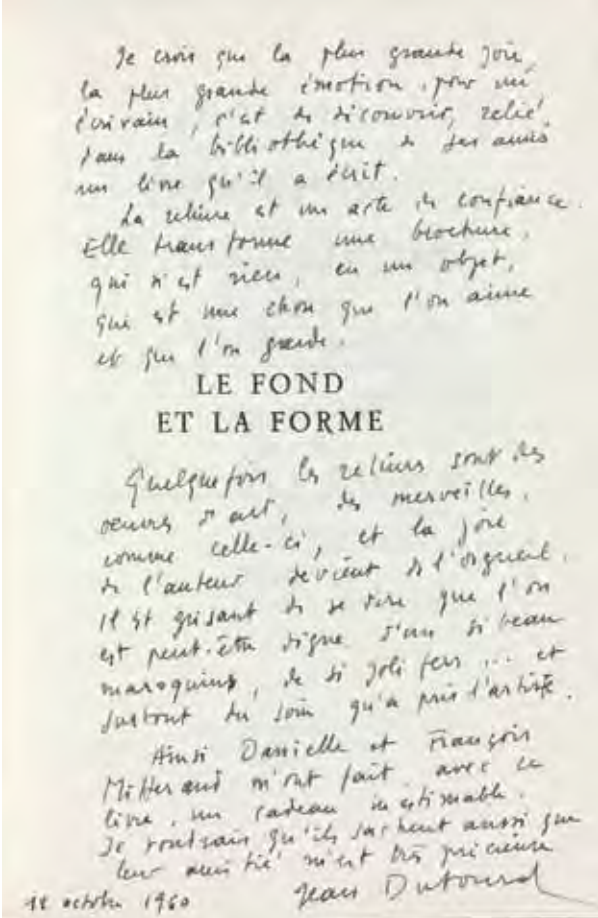 Je crois que la plus grande joie,
la plus grande émotion, pour un
écrivain, c'est de découvrir, relié,
dans la bibliothèque de ses amis
un livre qu'il a écrit.
La reliure est un acte de confiance.
Elle transforme une brochure,
qui n'est rien, en un objet,
qui est une chose que l'on aime
et que l'on garde.
LE FOND
ET LA FORME
Quelquefois les reliures sont des
oeuvres d'art, des merveilles,
comme celle-ci, et la joie
de l'auteur devient de l'orgueil.
Il est grisant de se dire que l'on
est peut-être digne d'un si beau
maroquin, de si jolis fers ... et
surtout du soin qu'a pris l'artiste.
Ainsi Danielle et François
Mitterand m'ont fait, avec ce
livre, un cadeau inestimable.
Je voudrais qu'ils sachent aussi que
leur amitié m'est très précieuse
Jean Dutourd
12 octobre 1960